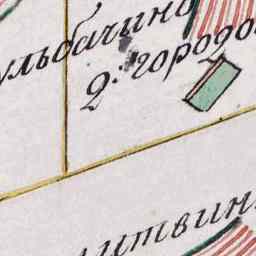 ульбачино
2. городо
литвин